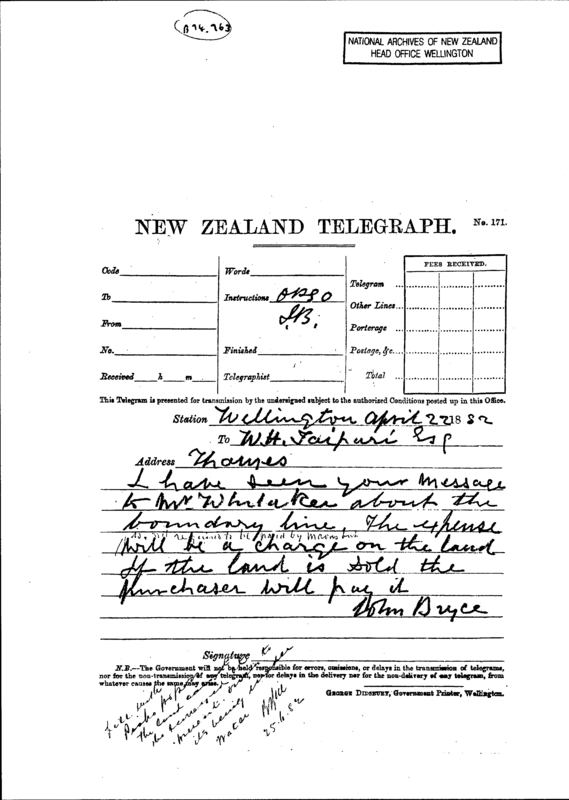 B 74.963
NATIONAL ARCHIVES OF NEW ZEALAND
HEAD OFFICE WELLINGTON
NEW ZEALAND TELEGRAPH. No. 171.
Code
Words
FEES RECEIVED.
Telegram
To
Instructions OPSO
J.B.
Other Lines
From
Porterage
No.
Finished
Postage, &c.
Received h m
Telegraphist
Total
This Telegram is presented for transmission by the undersigned subject to the authorized Conditions posted up in this Office.
Station Wellington April 22 1882
To W.H. Taipari Esq
Address Thames
I have seen your message
to Mr Whitaker about the
boundary line, The expense
to be paid by
will be a charge on the land
If the land is sold the
purchaser will pay it
John Bryce
Signature
N.B.—The Government will not be held responsible for errors, omissions, or delays in the transmission of telegrams,
nor for the non-transmission of any telegram, nor for delays in the delivery nor for the non-delivery of any telegram, from
whatever causes the same may arise.
GEORGE DIDSBURY, Government Printer, Wellington.
its being
25.4.82